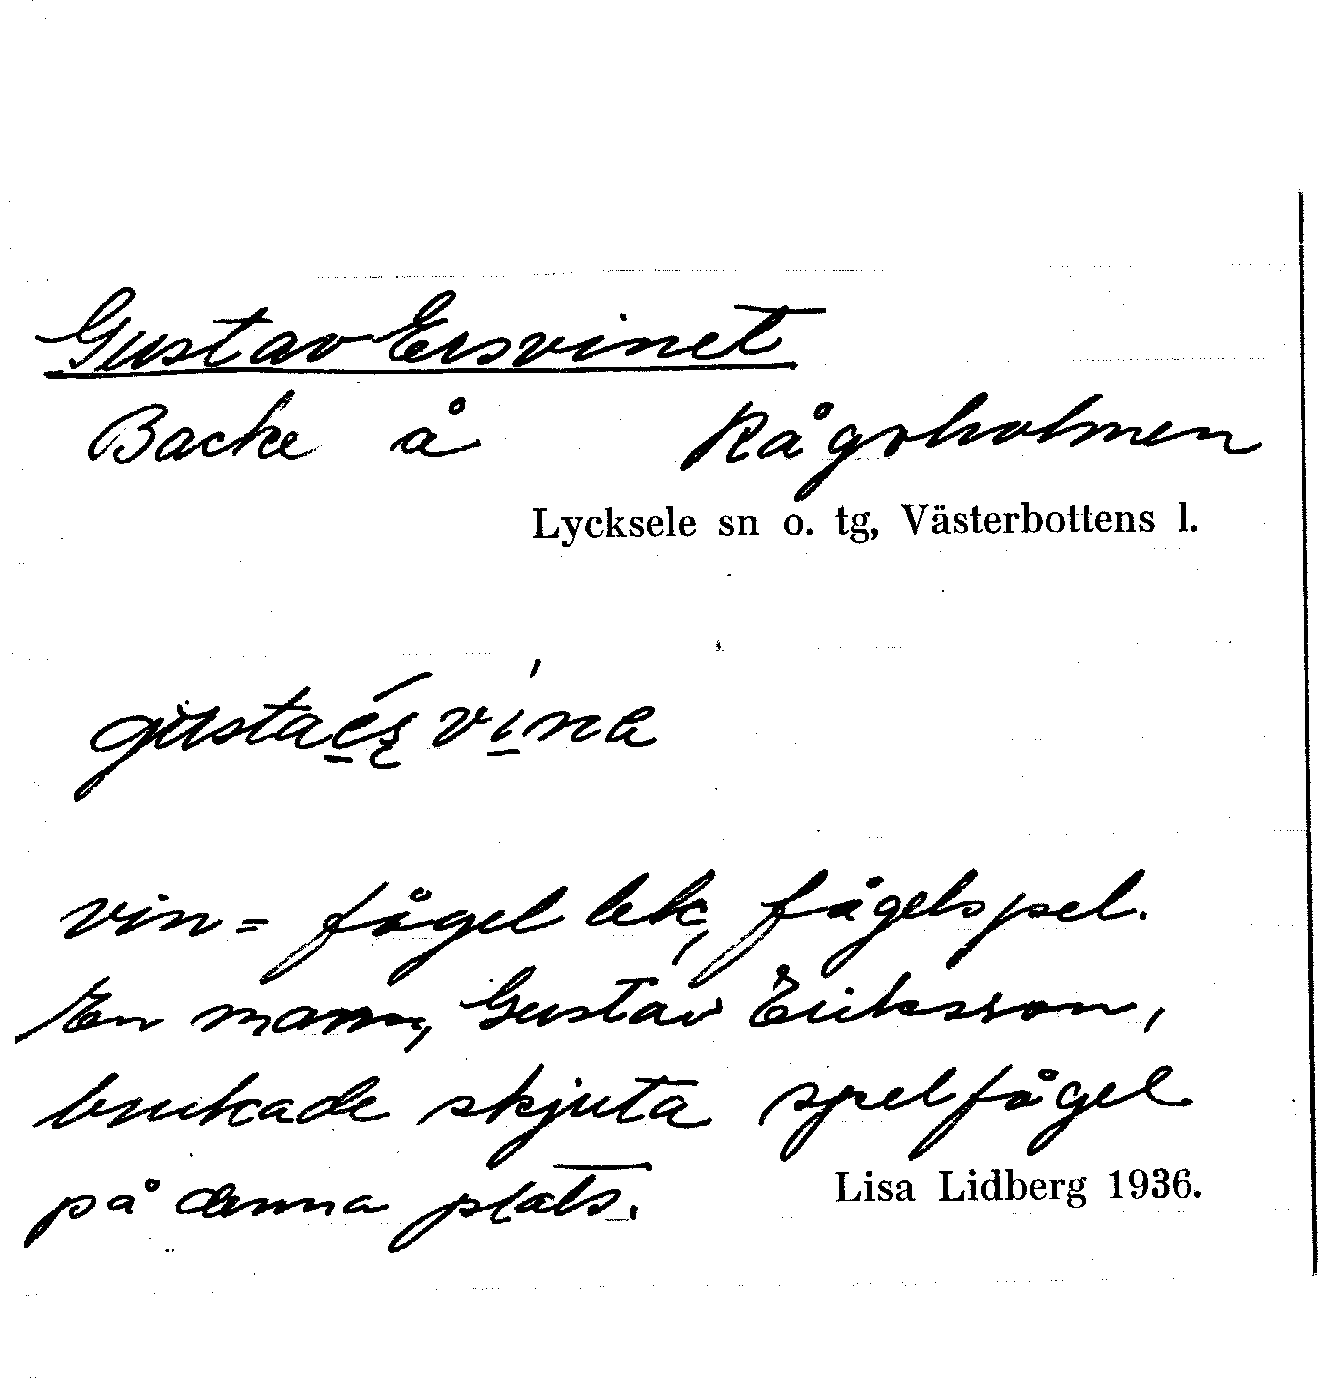 Gustav Ersvinet
Backe å Rågoholmen
Lycksele sn o. tg, Västerbottens l.
vin = fågellek, fågelspel.
En mann, Gustav Eriksson,
brukade skjuta spelfågel
på denna plats.
Lisa Lidberg 1936.